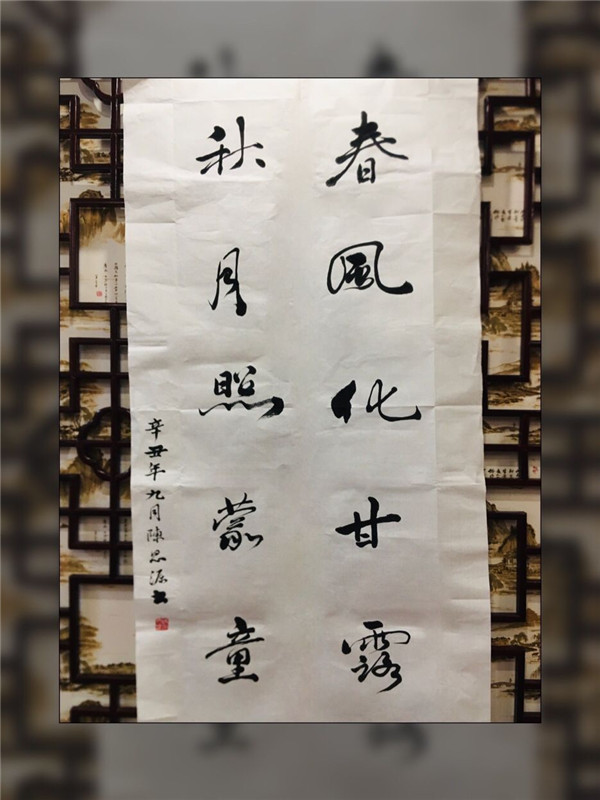 春風化甘露
秋月照蒙童
辛丑年九月陳思源書